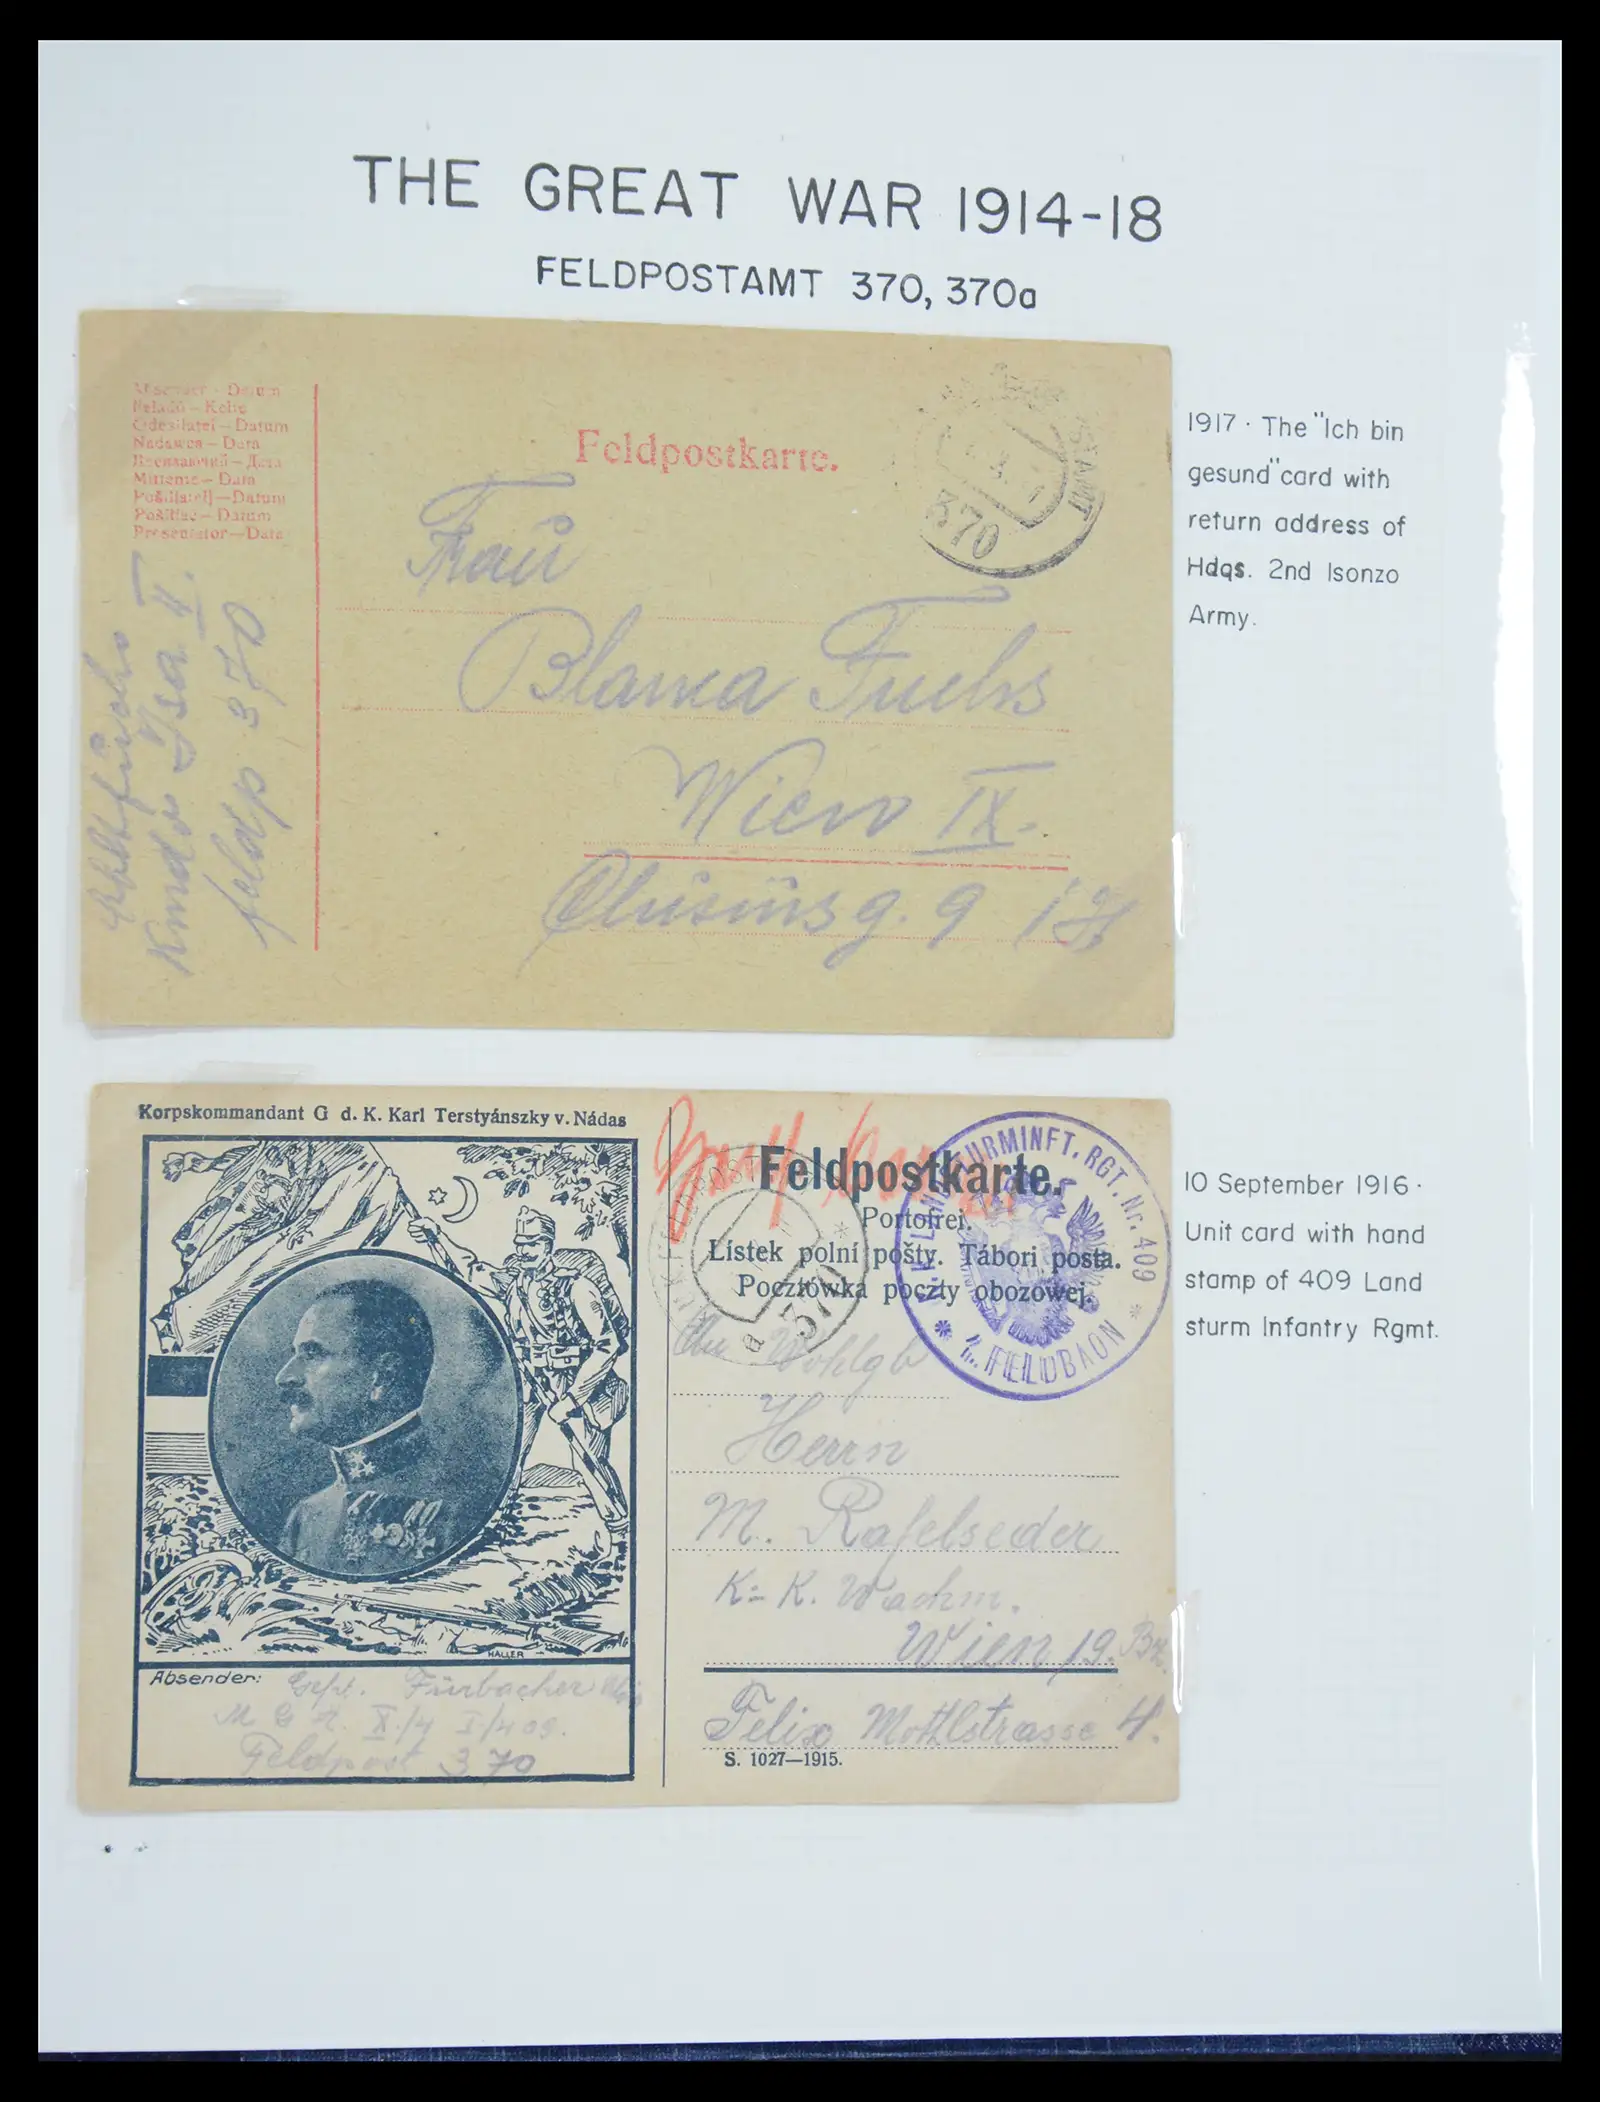 THE GREAT WAR 1914-18
FELDPOSTAMT 370, 370a
Absender - Datum
Feladó - Kelte
Odesílatel - Datum
Nadawca - Data
Mittente - Data
Pošiljatelj - Datum
Pošiljač - Datum
Presentator - Data
Feldpostkarte.
370
Frau
Blanka Fuchs
Wien IX.
9
Kmdo Isa II.
feldp 370
1917 · The "Ich bin
gesund" card with
return address of
Hdqs. 2nd Isonzo
Army.
Korpskommandant G d. K. Karl Terstyánszky v. Nádas
HALLER
Absender: Fürbacher
I/409.
Feldpost 370
Feldpostkarte.
Portofrei.
Lístek polní pošty. Tábori posta.
Pocztówka poczty obozowej.
a 370
LANDSTURMINFT. RGT. Nr. 409
* FELDBAON *
An Wohlgb
Herrn
M. Rafelseder
K. K. Wachm.
Wien 19. Bz.
Felix Mottlstrasse 4.
S. 1027—1915.
10 September 1916 ·
Unit card with hand
stamp of 409 Land
sturm Infantry Rgmt.